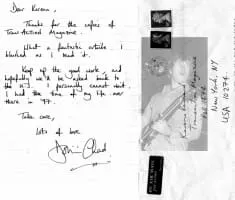 Dear Karena,
Thanks for the copies of
TransAction Magazine.
What a fantastic article. I
blushed as I read it.
Keep up the good work, and
hopefully we'll be asked back to
the U.S. I personally cannot wait.
I had the time of my life over
there in '97.
Take care,
lots of love
New York, NY
USA 10274